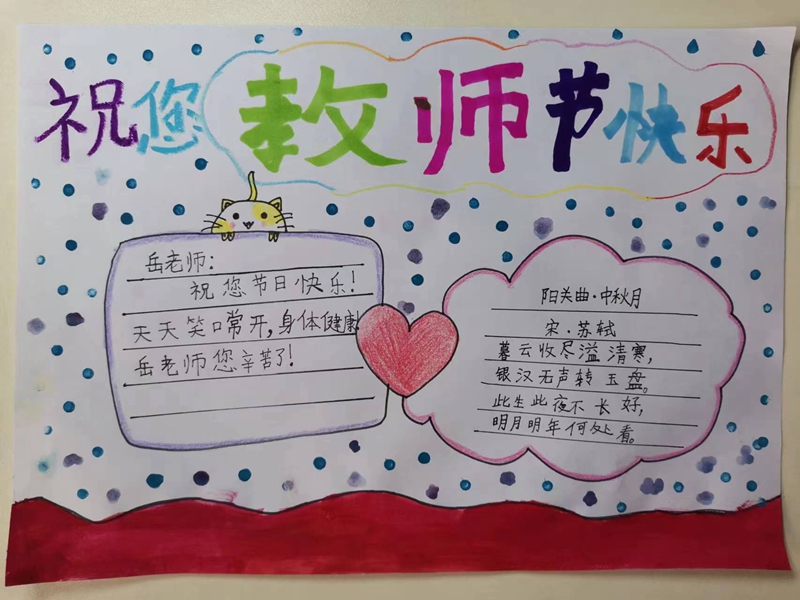 祝您教师节快乐
岳老师：
祝您节日快乐！
天天笑口常开，身体健康！
岳老师您辛苦了！
阳关曲·中秋月
宋·苏轼
暮云收尽溢清寒，
银汉无声转玉盘。
此生此夜不长好，
明月明年何处看。